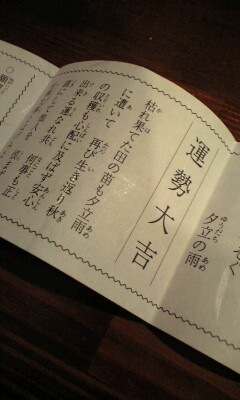 夕立の雨
運勢大吉
枯れ果てた田の苗も夕立雨
に遭いて 再び生き返り秋
の収穫も心配に及ばず安心
出来る運なれ共 何事も正